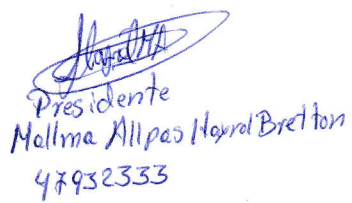 Presidente
Mallma Allpas Harrol Bretton
47932333